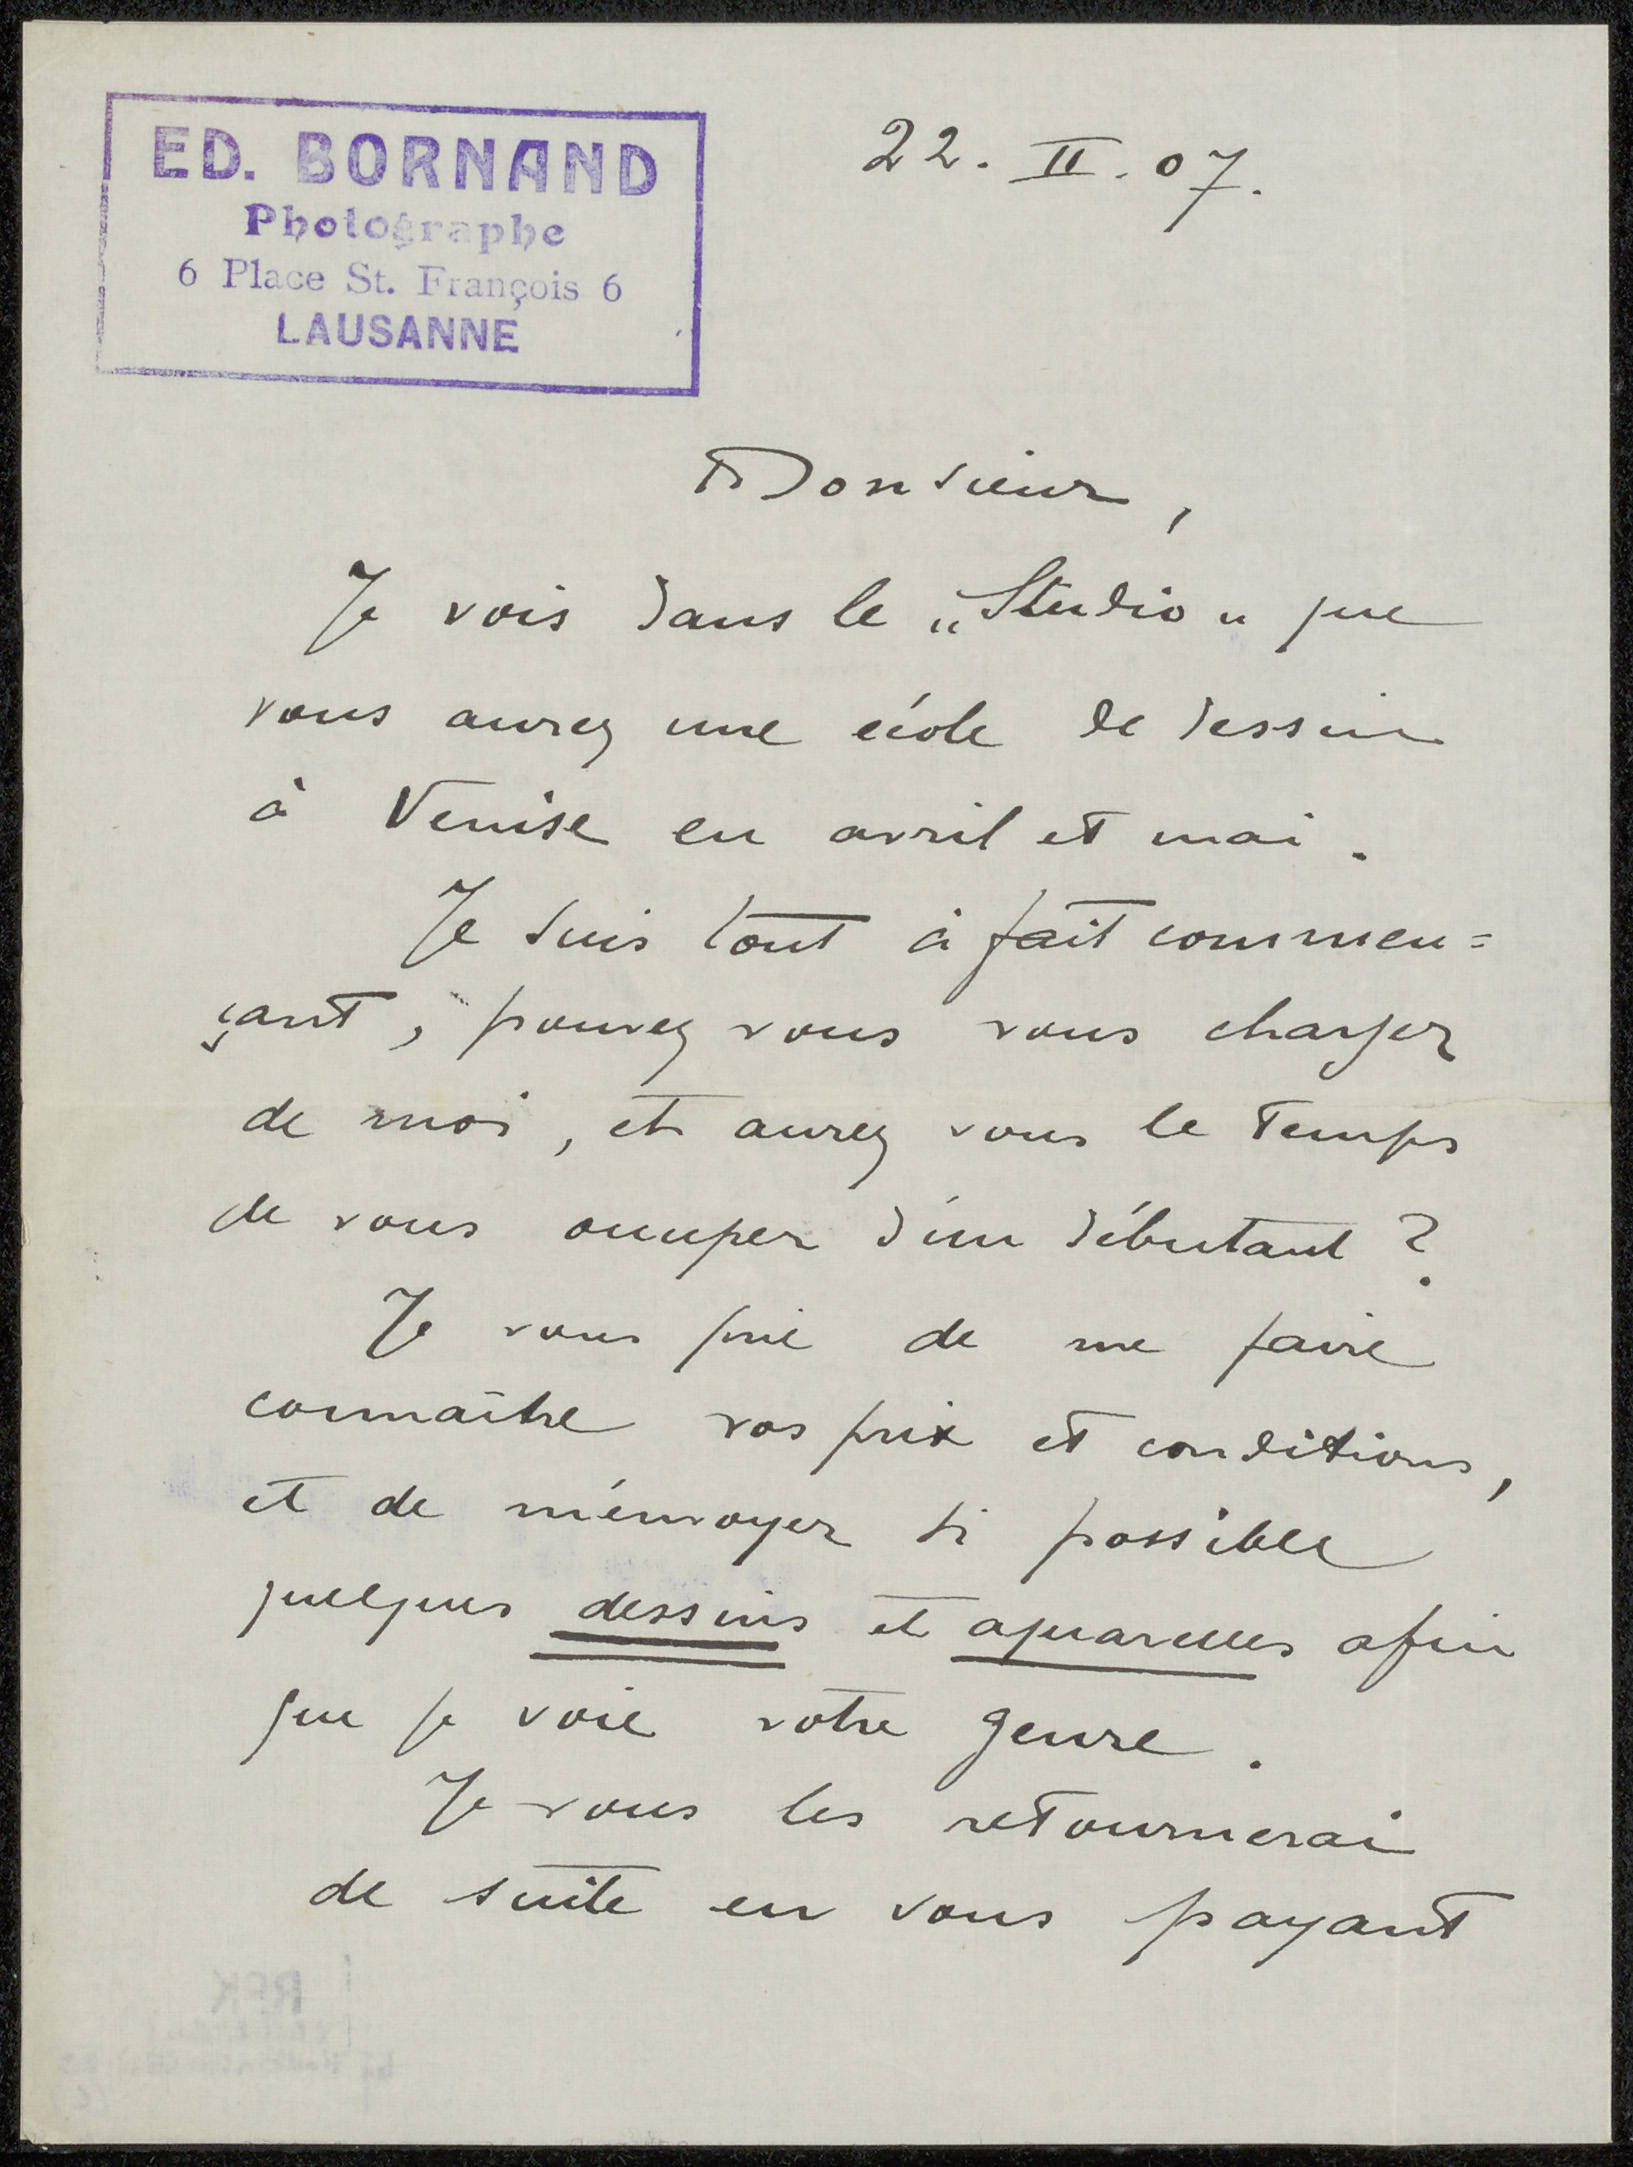 ED. BORNAND
Photographe
6 Place St. François 6
LAUSANNE
22. II. 07.
Monsieur,
Je vois dans le „Studio„ que
vous aurez une école de dessin
à Venise en avril et mai.
Je suis tout à fait commen=
çant, pouvez vous vous charger
de moi, et aurez vous le temps
de vous occuper d'un débutant ?
Je vous prie de me faire
connaître vos prix et conditions,
et de m'envoyer si possible
quelques dessins et aquarelles afin
que je voie votre genre.
Je vous les retournerai
de suite en vous payant